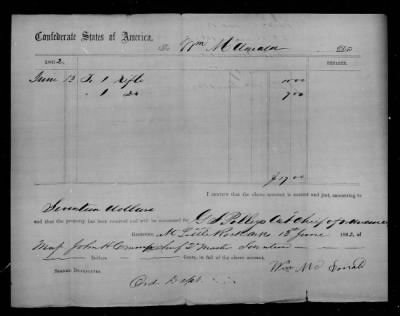 Confederate States of America,
To Wm McDonald DR.
1862. DOLLARS.
June 13 To 1 Rifle 10 00
" 1 do 7 00
$17 00
I CERTIFY that the above account is correct and just, amounting to
Seventeen Dollars
and that the property has been received and will be accounted for.
RECEIVED, At Little Rock Arks 13th June 1862, of
Maj John H Crump Seventeen
Dollars Cents, in full of the above account.
SIGNED DUPLICATES.
Wm McDonald
Ord. Dept.